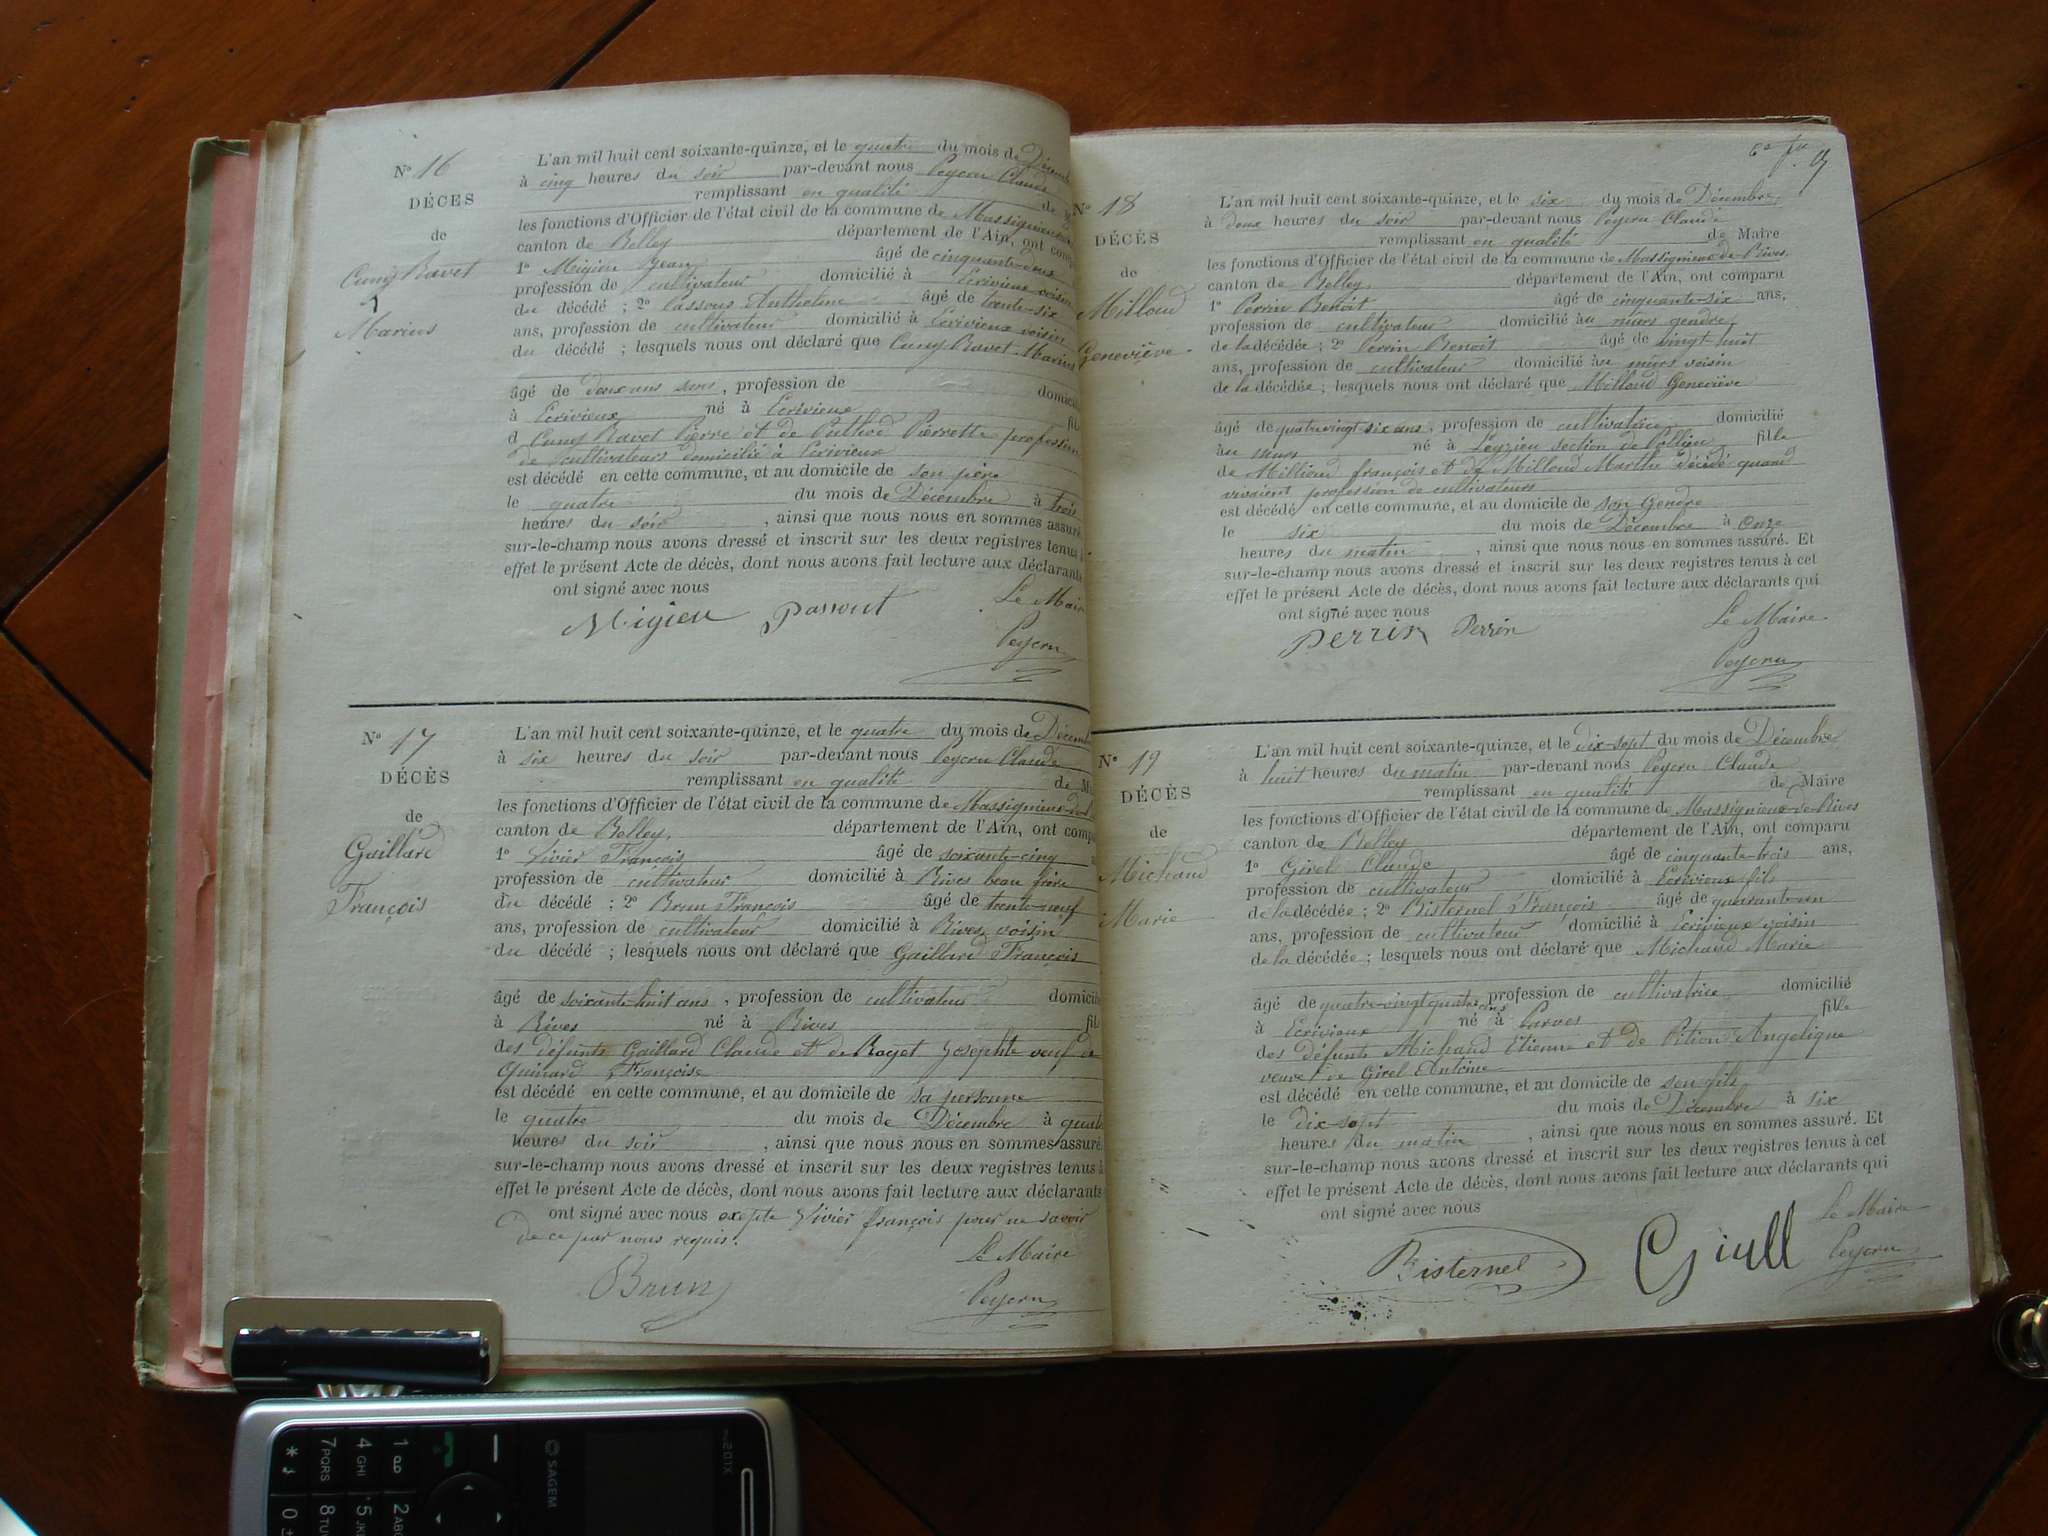 N° 16
DÉCÈS
de
Cuny Ravet
Marius
L'an mil huit cent soixante-quinze, et le quatre du mois de Décemb
à cinq heures du soir par-devant nous Peycru Claude
remplissant en qualité de
les fonctions d'Officier de l'état civil de la commune de Massignieu
canton de Belley département de l'Ain, ont comp
1° Migieu Jean âgé de cinquante-deux
profession de cultivateur domicilié à Ecrivieux voisin
du décédé ; 2° Anthelme âgé de trente-six
ans, profession de cultivateur domicilié à Ecrivieux voisin
du décédé ; lesquels nous ont déclaré que Cuny Ravet Marius
âgé de deux ans , profession de domicili
à Ecrivieux né à Ecrivieux fil
d Cuny Ravet Pierre et de Pierrette profession
de cultivateurs domicilié à Ecrivieux
est décédé en cette commune, et au domicile de son père
le quatre du mois de Décembre à trois
heures du soir , ainsi que nous nous en sommes assuré
sur-le-champ nous avons dressé et inscrit sur les deux registres tenus à
effet le présent Acte de décès, dont nous avons fait lecture aux déclarants
ont signé avec nous
Le Maire
Migieu Passout
Peycru
N° 17
DÉCÈS
de
Gaillard
François
L'an mil huit cent soixante-quinze, et le quatre du mois de Décemb
à six heures du soir par-devant nous Peycru Claude
remplissant en qualité de M
les fonctions d'Officier de l'état civil de la commune de Massignieu-de
canton de Belley département de l'Ain, ont comp
1° Livier François âgé de soixante-cinq
profession de cultivateur domicilié à Rives beau frère
du décédé ; 2° Brun François âgé de trente-neuf
ans, profession de cultivateur domicilié à Rives voisin
du décédé ; lesquels nous ont déclaré que Gaillard François
âgé de soixante-huit ans , profession de cultivateur domicili
à Rives né à Rives fil
des défunts Gaillard Claude et de Royet Josephte veuf de
Guinard Françoise
est décédé en cette commune, et au domicile de sa personne
le quatre du mois de Décembre à quat
heures du soir , ainsi que nous nous en sommes assuré
sur-le-champ nous avons dressé et inscrit sur les deux registres tenus à
effet le présent Acte de décès, dont nous avons fait lecture aux déclarants
ont signé avec nous exepte Livier françois pour ne savoir
de ce par nous requis.
Le Maire
Brun
Peycru
N° 18
DÉCÈS
de
Milloud
Geneviève
L'an mil huit cent soixante-quinze, et le six du mois de Décembre
à deux heures du soir par-devant nous Peycru Claude
remplissant en qualité de Maire
les fonctions d'Officier de l'état civil de la commune de Massignieu-de Rives
canton de Belley département de l'Ain, ont comparu
1° Perrin Benoit âgé de cinquante-six ans,
profession de cultivateur domicilié au murs gendre
de la décédée ; 2° Perrin Benoit âgé de vingt huit
ans, profession de cultivateur domicilié au murs voisin
de la décédée ; lesquels nous ont déclaré que Milloud Geneviève
âgé de quatre vingt six ans , profession de cultivatrice domicilié
au murs né à Leyzieu section de Pollieu fille
de Millioud françois et de Milloud Marthe décédé quand
vivaient profession de cultivateurs
est décédé en cette commune, et au domicile de son Gendre
le six du mois de Décembre à Onze
heures du matin , ainsi que nous nous en sommes assuré. Et
sur-le-champ nous avons dressé et inscrit sur les deux registres tenus à cet
effet le présent Acte de décès, dont nous avons fait lecture aux déclarants qui
ont signé avec nous
Le Maire
Perrin Perrin
Peycru
N° 19
DÉCÈS
de
Michaud
Marie
L'an mil huit cent soixante-quinze, et le dix-sept du mois de Décembre
à huit heures du matin par-devant nous Peycru Claude
remplissant en qualité de Maire
les fonctions d'Officier de l'état civil de la commune de Massignieu-de-Rives
canton de Belley département de l'Ain, ont comparu
1° Girel Claude âgé de cinquante-trois ans,
profession de cultivateur domicilié à Ecrivieux fils
de la décédée ; 2° Bisternel François âgé de quarante-un
ans, profession de cultivateur domicilié à Ecrivieux voisin
de la décédée ; lesquels nous ont déclaré que Michaud Marie
âgé de quatre-vingt quatre ans profession de cultivatrice domicilié
à Ecrivieux né à Parves fille
des défunts Michaud Etienne et de Pition Angelique
veuve de Girel Antoine
est décédé en cette commune, et au domicile de son fils
le dix-sept du mois de Décembre à six
heures du matin , ainsi que nous nous en sommes assuré. Et
sur-le-champ nous avons dressé et inscrit sur les deux registres tenus à cet
effet le présent Acte de décès, dont nous avons fait lecture aux déclarants qui
ont signé avec nous
Le Maire
Bisternel Girell
Peycru
my201X
SAGEM
1
2 ABC
4 GHI
5 JKL
7 PQRS
8 TUV
*
0